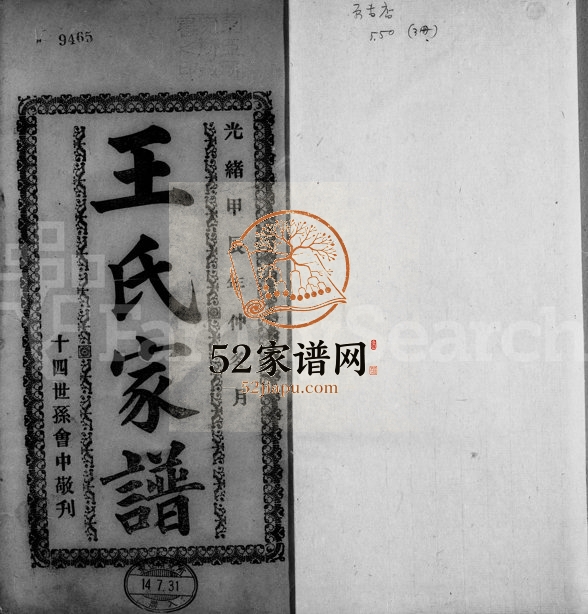 9465
光緒甲辰年仲月
王氏家譜
十四世孫會中敬刊
14.7.31
5.50 (3冊)
FamilySearch
52家谱网
52jiapu.com